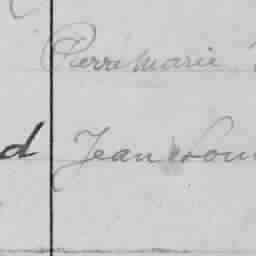 Pierre Marie
d Jean